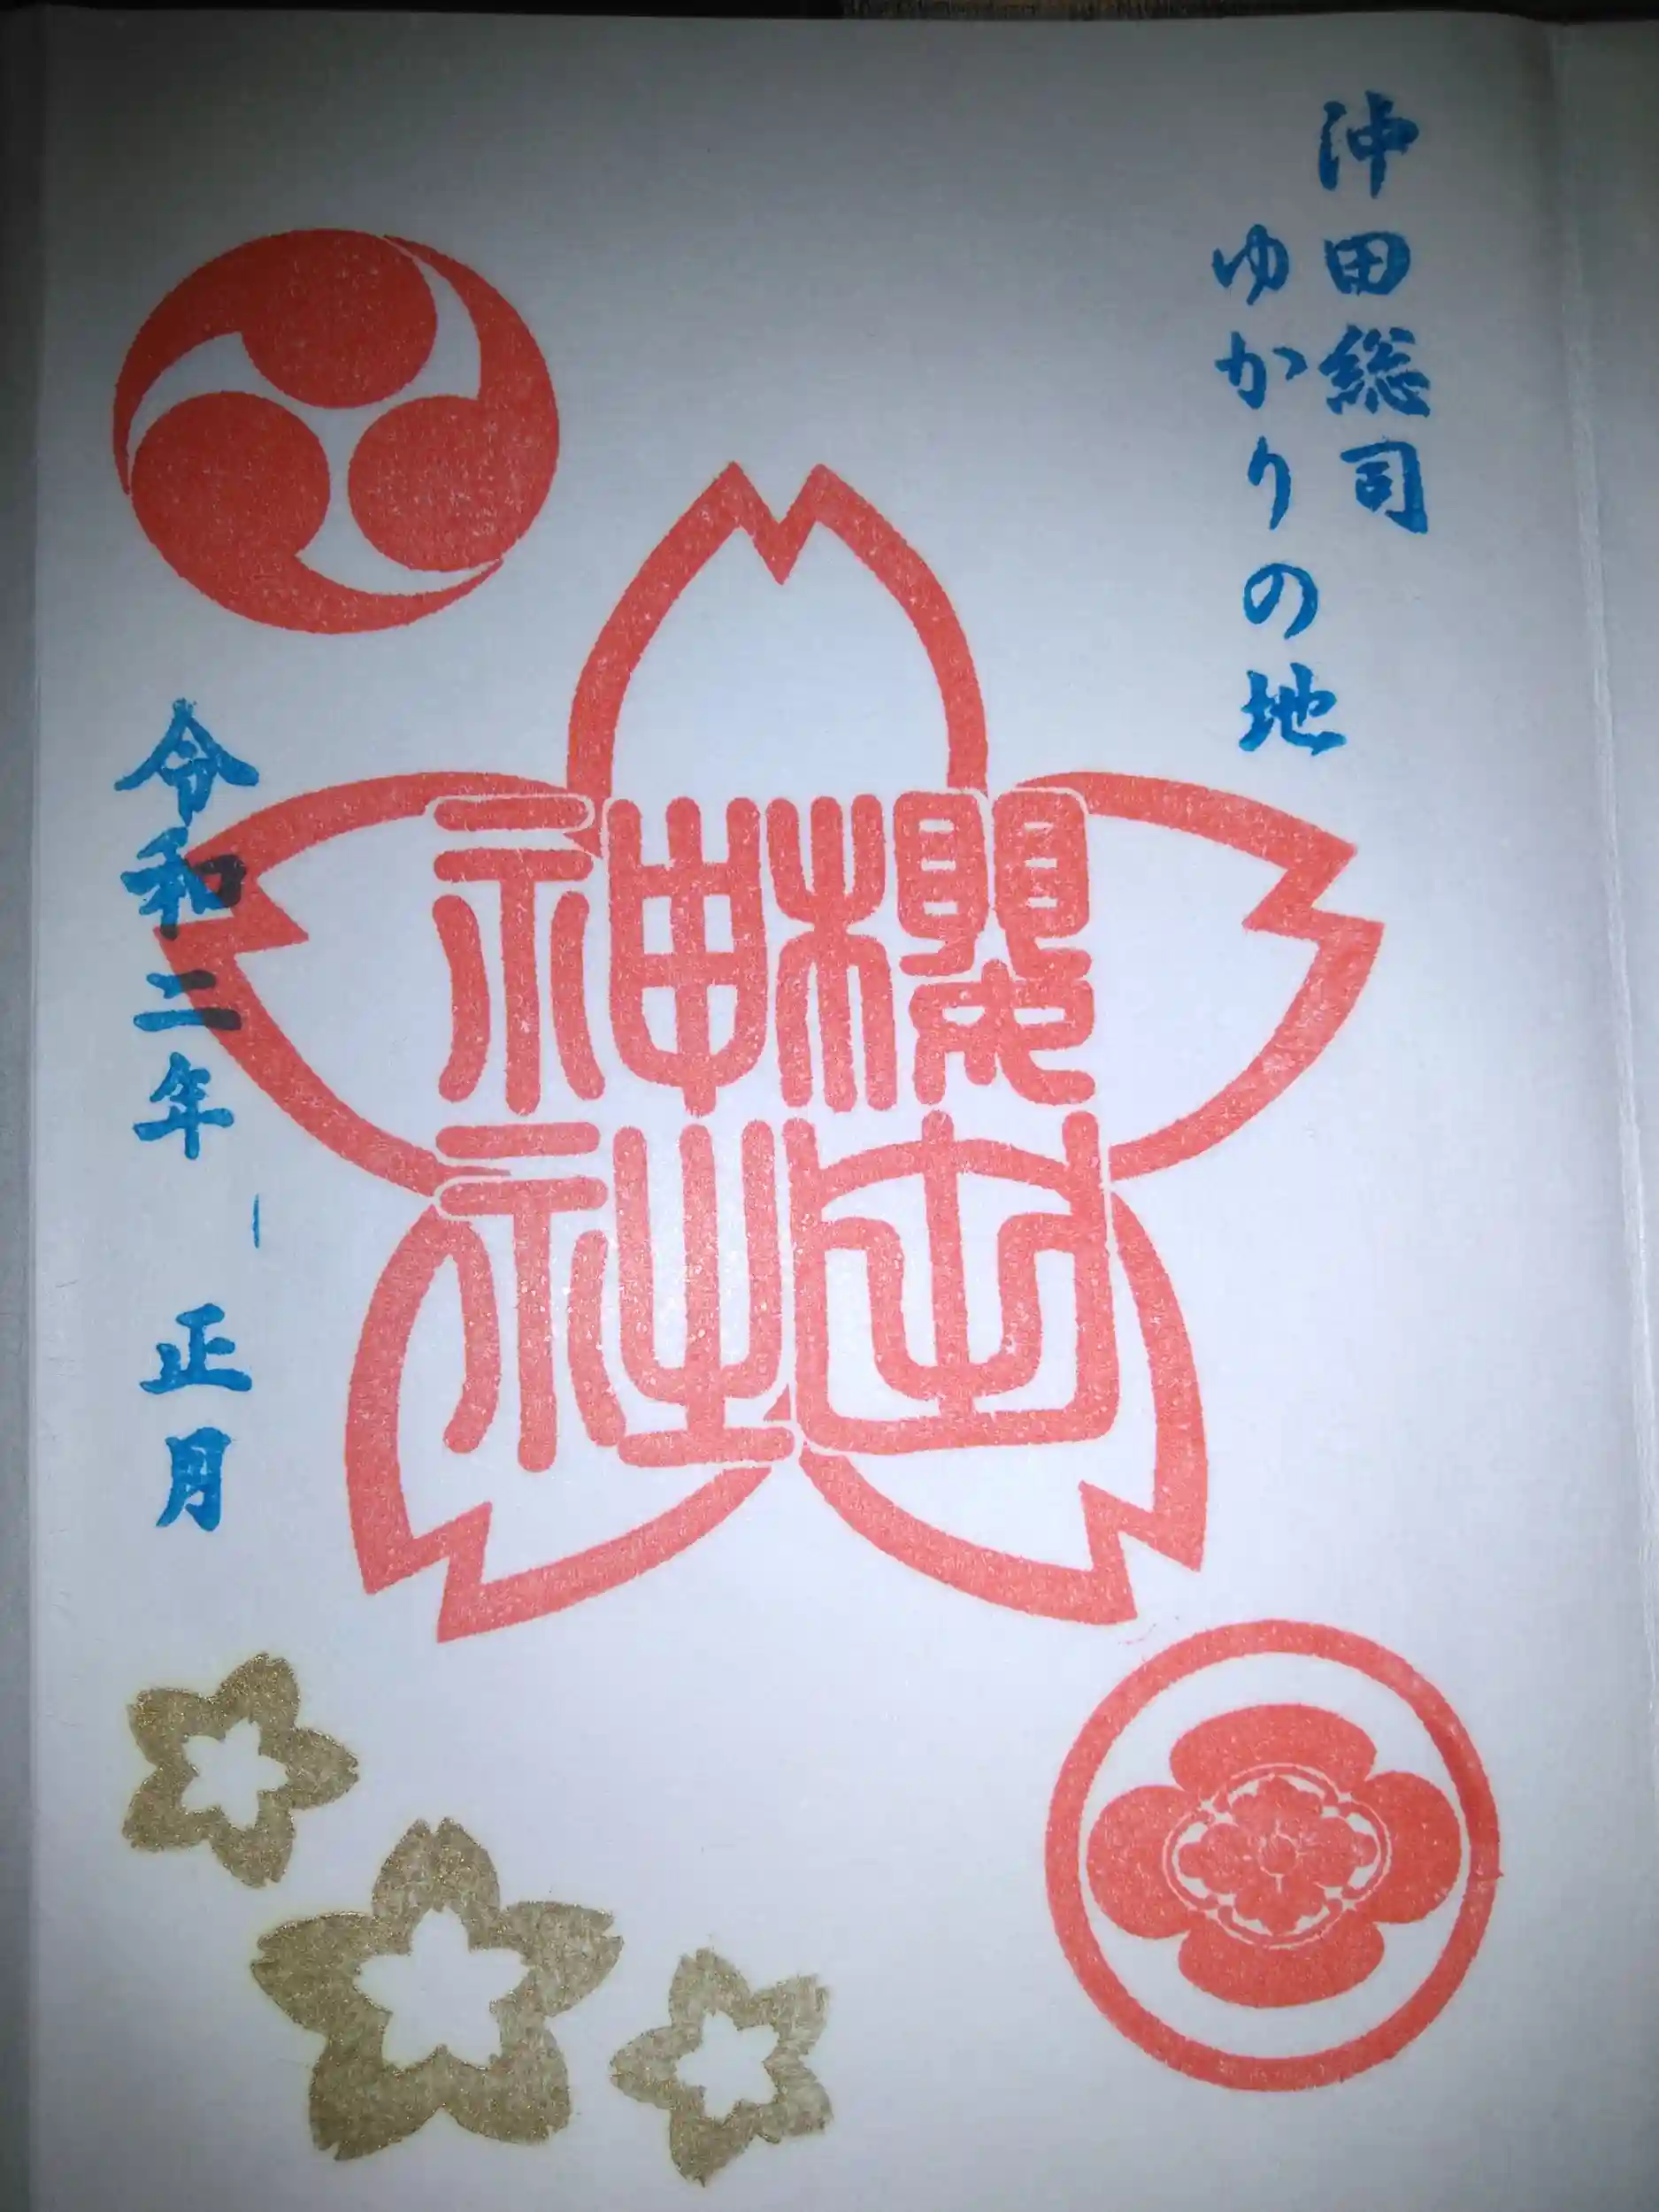 沖田総司
ゆかりの地
櫻田
神社
令和二年 正月